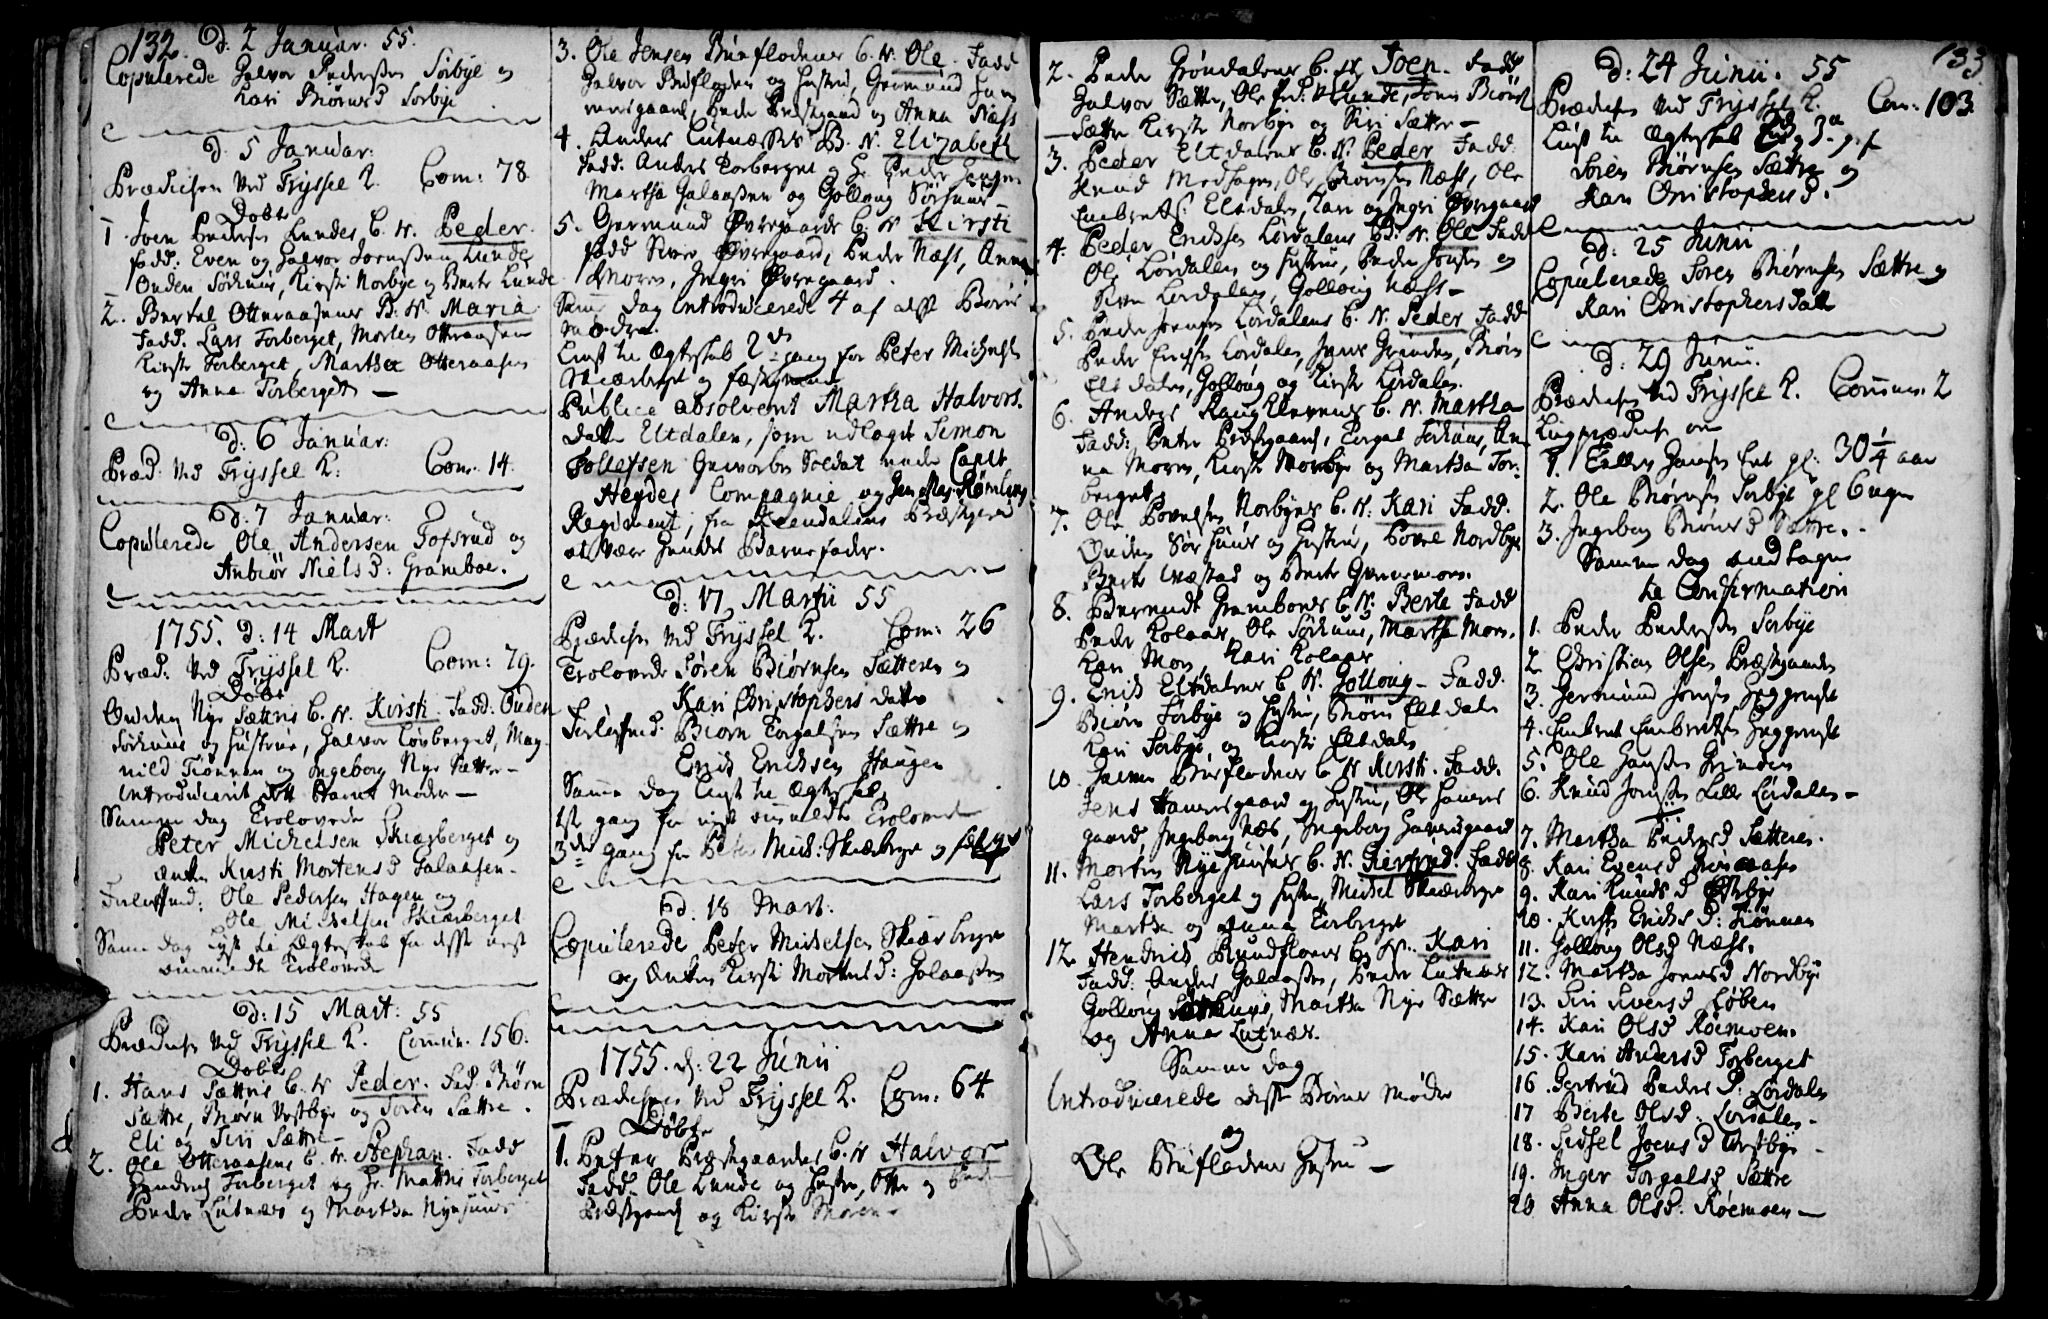 132.
D: 2 Januar. 55.
Copulerede Halvor Pedersen Sørbye og
Kari Biørns D Sorbye
D. 5 Januar:
Prædiken ved Tryssel K. Com: 78
Døbt
1 Joen Peders Lundes B. N. Peder.
Fadd. Even og Halvor Joensen Lunde
Ouden Sørhuus, Kirsti Norbye og Berte Lunde
2. Bertel Otteraasens B. N. Maria
Fadd. Lars Torberget, Morten Otteraasen
Kirsti Torberget, Martha Otteraasen
og Anna Torberget
D: 6 Januar:
Præd. ved Tryssel K: Com: 14.
D. 7 Januar:
Copulerede Ole Andersen Tofsrud og
Anbiør Niels D: Gramboe.
1755. D: 14 Mart
Præd: ved Tryssel K. Com: 79.
Døbt
Ouden Nye Sættres B. N. Kirsti. Fadd. Ouden
Sørhuus og Hustrue, Halvor Løvberget, Mag-
nild Tiønnen og Ingeborg Nye Sætter
Introducerit dett Barns Moder
Samme dag Trolovede
Peter Michelsen Skiærberget og
Enken Kirsti Mortens D Galaasen.
Forlofved: Ole Pedersen Hagen og
Ole Michelsen Skiærberget
Samme dag lyst til Ægteskab for disse næst
anmeldte Trolovede
D: 15 Mart: 55
Prædiken ved Tryssel K. Commun. 156.
Døbt
1. Hans Sættres B. N. Peder. Fad. Biørn
Sættre, Biørn Vestbye og Soren Sættre.
Eli og Siri Sættre
2. Ole Otteraasens B. N. Stephan. Fadd
Hendrich Torberget og Hr. Mattis Torberget
Peder Lutnæs og Martha Nyehuus
3. Ole Jensen Bueflodens B. N. Ole. Fadd
Halvor Buefloden og Hustrue, Germund Ham
mersgaard, Peder Præstgaard og Anna Næss
4. Anders Lutnæsets B. N. Elizabeth
Fadd. Anders Torberget og Hr. Peder Jensen
Martha Galaasen og Gollaug Sørhuus
5. Germund Øvregaards B. N. Kirsti
Fadd Siver Øvregaard, Peder Næss, Anna
Moren, Ingri Øvregaard.
Samme dag introducerede 4 af disse Børns
Mødre.
Lyst til Ægteskab 2den gang for Peter Michelsen
Skiærberget og fæstqvinde
Publice absolvent Martha Halvors.
datter Eltdalen, som udlagt Simon
Tollefsen Gevorben Soldat under Capit
Heydes Compagnie og General Maj: Rømlings
Regiment, fra Præstgield
at være hendes Barnefader.
D: 17 Martii 55
Prædiken ved Tryssel K. Com: 26
Trolovede Søren Biørnsen Sætteren og
Kari Christophers datter
Forlofved. Biørn Torgalsen Sættre og
Erik Ericksen Haugen
Samme dag lyst til Ægteskab
1st gang for næst anmeldte Trolovede
3de gang for Peter Mich: Skiærberget og
D. 18 Mart:
Copulerede Peter Michelsen Skiærberget
og Enken Kirsti Mortens D: Galaasen
1755. d: 22 Junii
Prædiken ved Tryssel K. Com: 64
Døbt
1. Peter Præstgaardes B. N Halvor
Fadd. Ole Lunde og Hustrue, Otter og Peder
Præstgaard og Kirsti Moren
133
2. Peder Grøndalens B. N. Joen. Fadd
Halvor Sætter, Ole Lunde, Jons Biørns
Sættre Kirsti Norbye og Siri Sætter
3. Peder Eltdalens B. N. Peder Fadd:
Knud Medhagen, Ole Biørnsen Næss, Ole
Embretsen Eltdalen, Kari og Ingri Øvregaard
4. Peder Eriksen Lørdalens B. N. Ole Fadd
Ole Lørdalen og Hustrue, Peder Jonsen og
Siver Lørdalen, Gollaug Næss
5. Peder Jonsen Lørdalens B. N. Peder Fadd
Peder Erichsen Lørdalen, Jens Grinden, Biørn
Eltdalen, Gollaug og Kirsti Lørdalen.
6. Anders Klevens B. N. Martha
Fadd: Peter Præstgaard, Torgal Sørhuus, An-
na Moren, Kirsti Norbye og Martha Tor-
berget.
7. Ole Povelsen Norbyes B. N. Kari Fadd.
Ouden Sørhuus og Hustrue, Povel Nordbye
Berte og Berte
8. Berendt Gramboes B. N. Berte Fadd
Peder Kolaas, Ole Sørhuus, Martha Moren.
Kari Moren, Kari Kolaas
9. Erich Eltdalens B. N. Gollaug Fadd.
Biørn Sørbye og Hustrue, Biørn Eltdalen
Kari Sorbye, og Kirsti Eltdalen
10. Halvor Bueflodens B. N. Kirsti. Fadd.
Jens Hamersgaard og Hustrue, Ole Hamers
gaard, Ingeborg Næss, Ingeborg Hamersgaard
11. Morten Nyehuuses B. N. Gertrud. Fadd
Lars Torberget og Hustrue, Michel Skiærberget
Martha og Anna Torberget
12. Hendrich Brundfloens B. N. Kari
Fadd: Anders Galaasen, Peder Lutnæs
Gollaug Sørhuus, Martha Nye Sætter
og Anna Lutnæs.
Samme dag
Introducerede disse Børns Mødre
og
Ole Bueflodens Hustrue
D: 24 Junii. 55
Prædiken ved Tryssel K. Com: 103
Lyst til Ægteskab 2d og 3de g. f
Soren Biørnsen Sættre og
Kari Christophers D.
D: 25 Junii
Copulerede Soren Biørnsen Sættre og
Kari Christophersdatt
D. 29 Junii.
Prædiken ved Tryssel K. Commun. 2
Liigprædiken over
1. gl: 30 1/4 aar
2. Ole Biørnsen Sorbye gl 6 uger
3. Ingeborg Biørns D Sættre.
Samme dag antagen
til Confirmation
1. Peder Pedersen Sørbye
2. Christian Olsen Præstgaarden
3. Germund Jonsen Hyggeruset
4. Embret Embretsen Hyggeruset
5. Ole Jensen Grinden
6. Knud Jonsen Lille Lørdalen
7. Martha Peders D Sætteren.
8. Kari Evens D
9. Kari Knuds D Østbye
10. Kirsti Erichs D: Tiønnen
11. Gollaug Ols D Næss.
12. Martha Joens D Nordbye
13. Siri Sivers D Løben
14. Kari Ols D Røemoen.
15. Kari Anders D Torberget
16 Gertrud Peders D: Lørdalen
17 Berte Ols D. Lørdalen.
18. Sidsel Joens D Vestbye
19. Inger Torgals D Sættre
20 Anna Ols D. Røemoen